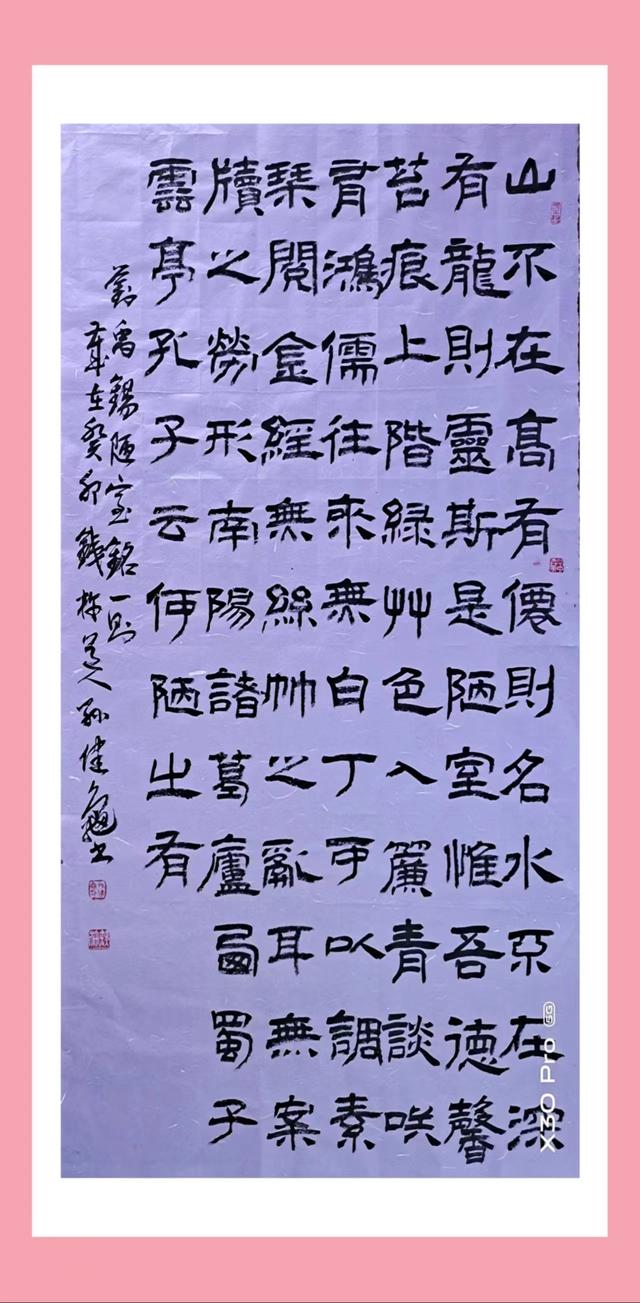 山不在髙有僊則名水不在深
有龍則靈斯是陋室惟吾德馨
苔痕上階緑艸色入簾青談咲
有鴻儒往來無白丁可以調素
琴閱金經無絲竹之亂耳無案
牘之勞形南陽諸葛廬西蜀子
雲亭孔子云何陋之有
劉禹錫陋室銘一則
歲在癸卯道人孫佳書
X30 Pro